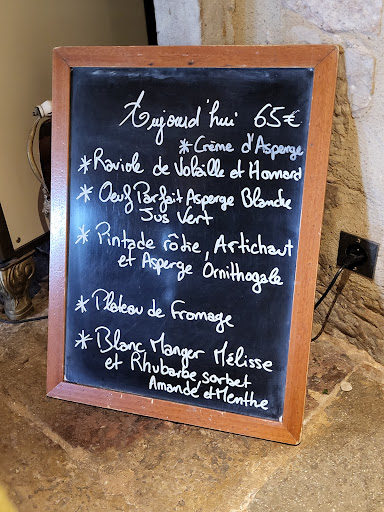 Aujourd'hui 65€
* Crème d'Asperge
* Raviole de Volaille et Homard
* Oeuf Parfait Asperge Blanche
Jus Vert
* Pintade rôtie, Artichaut
et Asperge Ornithogale
* Plateau de Fromage
* Blanc Manger Mélisse
et Rhubarbe, sorbet
Amande et Menthe